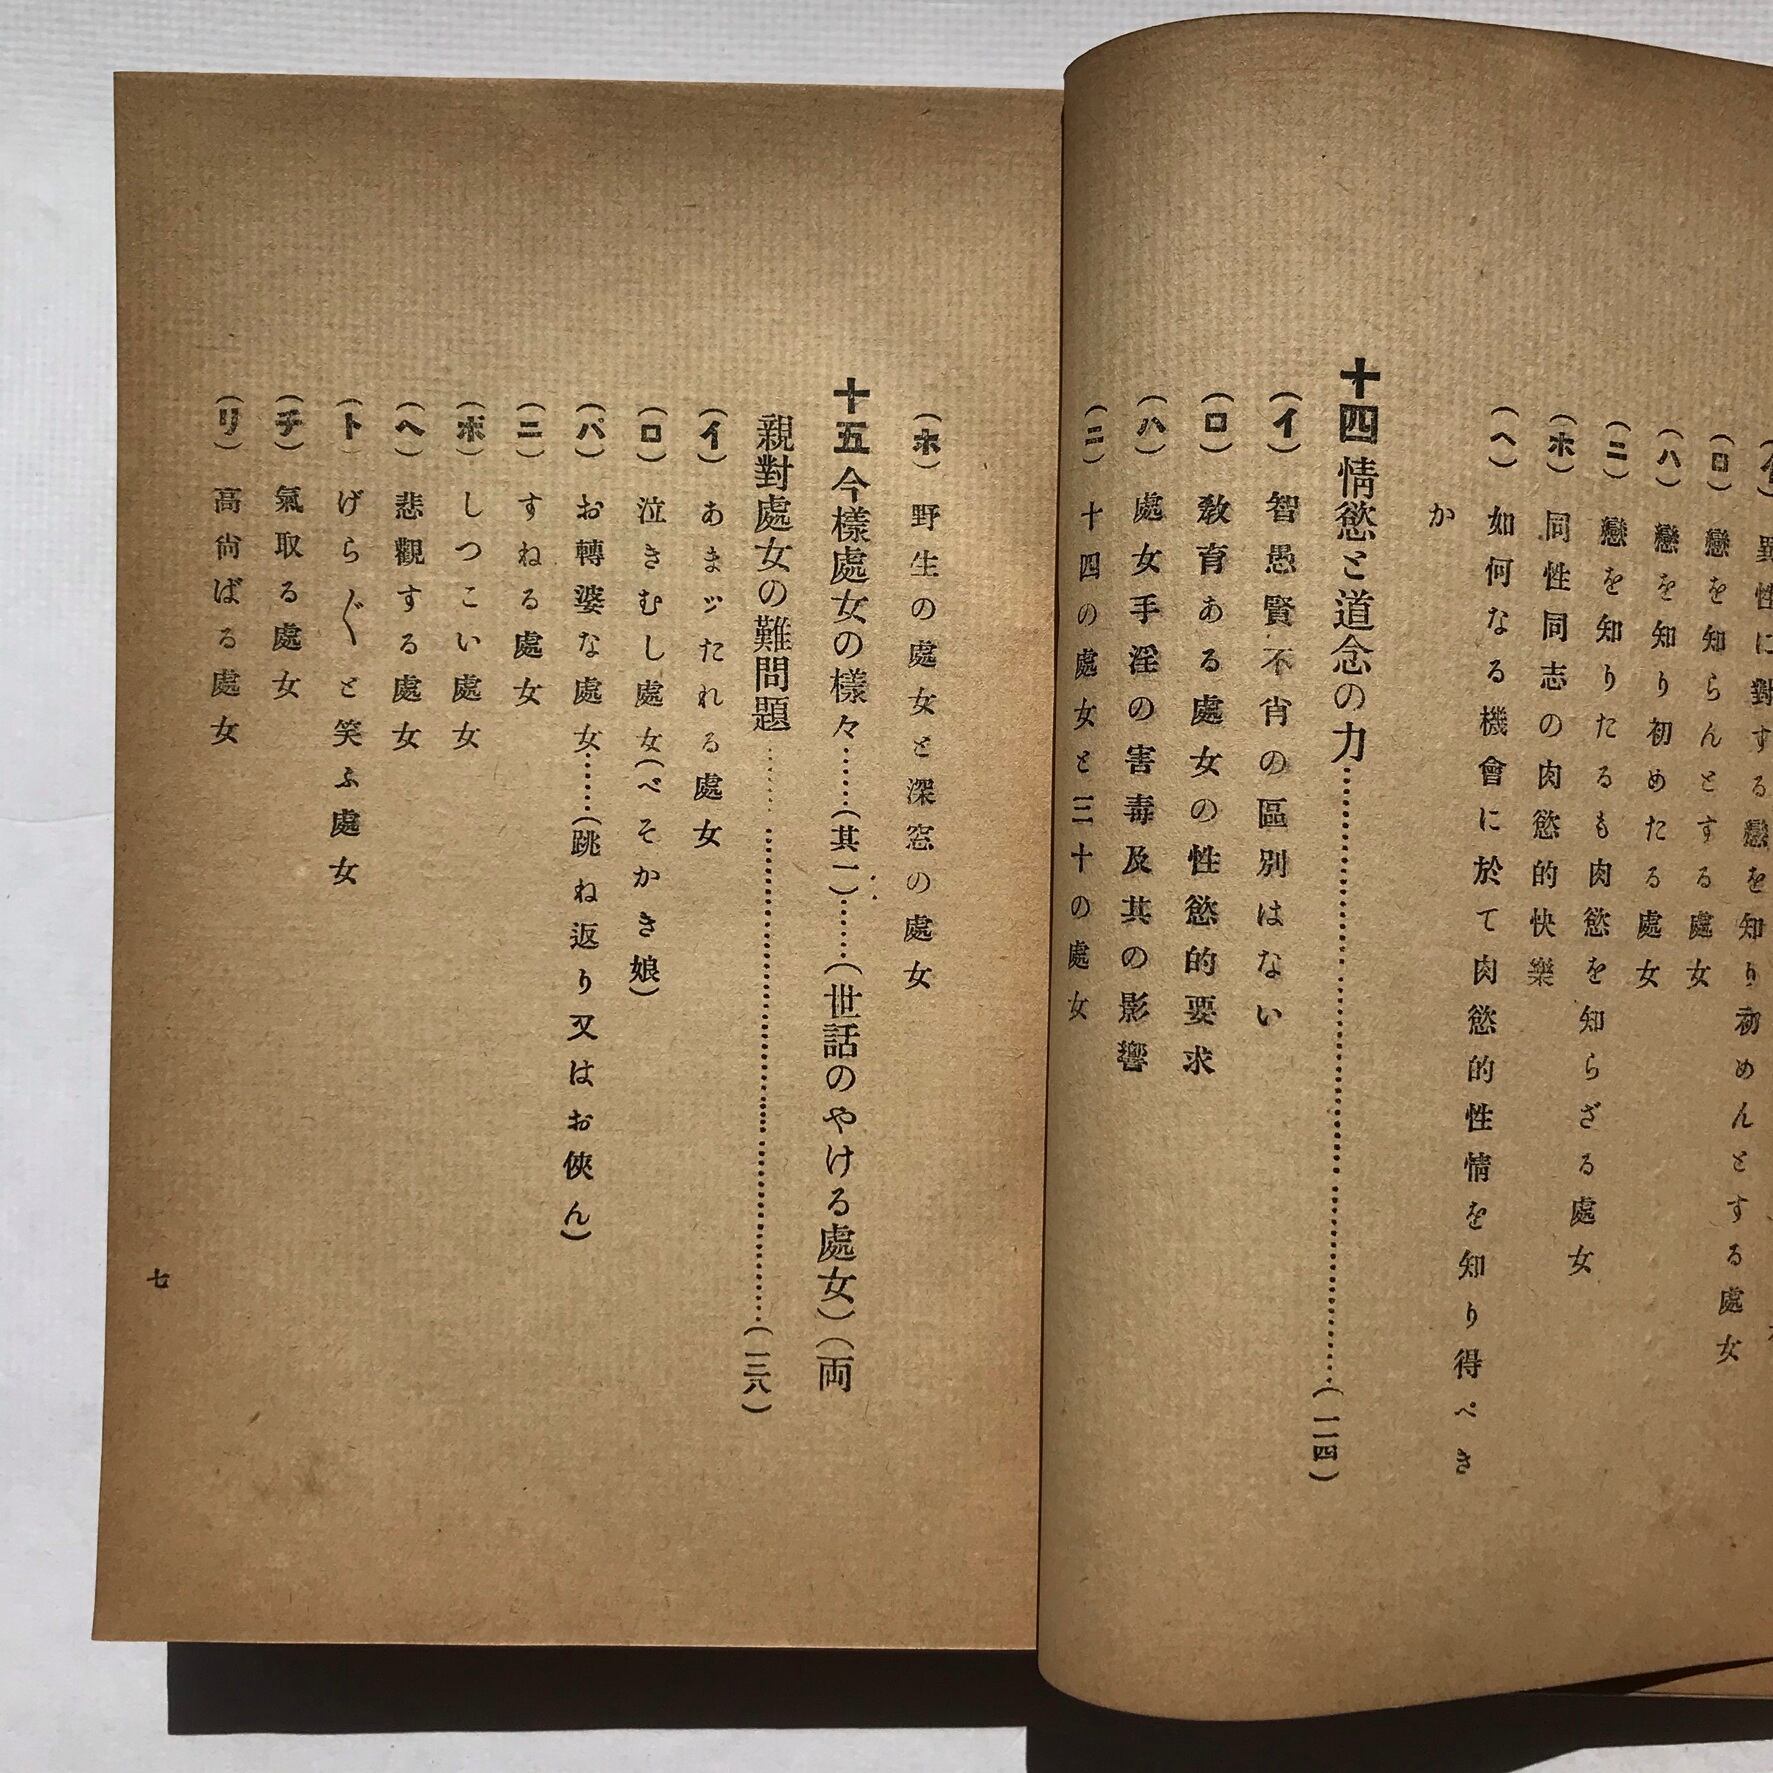 異性に對する戀を知り初めんとする處女
(ロ) 戀を知らんとする處女
(ハ) 戀を知り初めたる處女
(ニ) 戀を知りたるも肉慾を知らざる處女
(ホ) 同性同志の肉慾的快樂
(ヘ) 如何なる機會に於て肉慾的性情を知り得べき
か
十四 情慾と道念の力……(一一四)
(イ) 智愚賢不肖の區別はない
(ロ) 敎育ある處女の性慾的要求
(ハ) 處女手淫の害毒及其の影響
(ニ) 十四の處女と三十の處女
(ホ) 野生の處女と深窓の處女
十五 今樣處女の樣々……(其一)……(世話のやける處女)(両
親對處女の難問題……(一三八)
(イ) あまッたれる處女
(ロ) 泣きむし處女(べそかき娘)
(パ) お轉婆な處女……(跳ね返り又はお俠ん)
(ニ) すねる處女
(ボ) しつこい處女
(ヘ) 悲觀する處女
(ト) げら〴〵と笑ふ處女
(チ) 氣取る處女
(リ) 高尙ばる處女
七